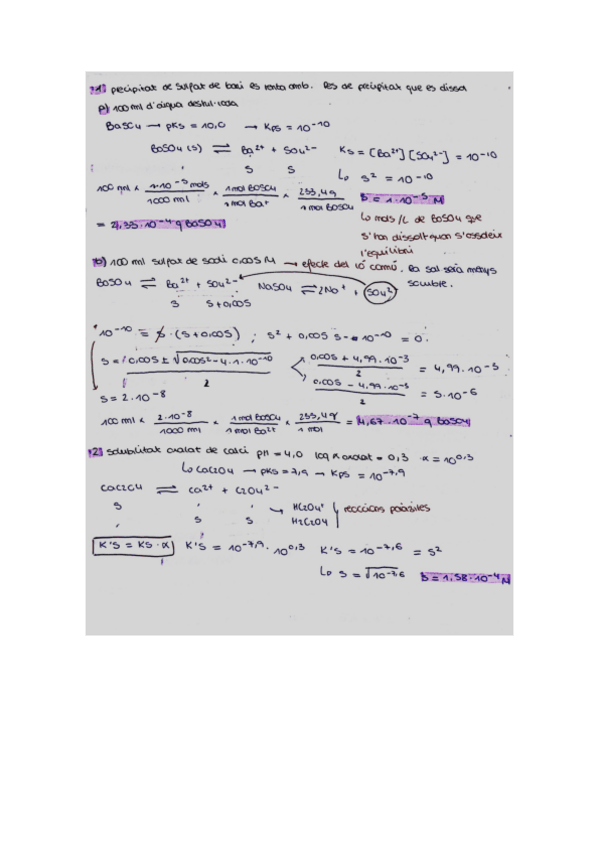 1. precipitat de sulfat de bari es renta amb. Pes de precipitat que es dissol
a) 100 ml d'aigua destil·lada
BaSO4 → pKs = 10,0 → Kps = 10⁻¹⁰
BaSO4 (s) ⇌ Ba²⁺ + SO4²⁻ Ks = [Ba²⁺] [SO4²⁻] = 10⁻¹⁰
s s ↳ s² = 10⁻¹⁰
100 ml × 1·10⁻⁵ mols / 1000 ml × 1 mol BaSO4 / 1 mol Ba²⁺ × 233,4 g / 1 mol BaSO4 s = 1·10⁻⁵ M
= 2,33·10⁻⁴ g BaSO4
↳ mols/L de BaSO4 que
s'han dissolt quan s'assoleix
l'equilibri
b) 100 ml sulfat de sodi 0,005 M → efecte del ió comú. La sal serà menys
soluble.
BaSO4 ⇌ Ba²⁺ + SO4²⁻ NaSO4 ⇌ 2Na⁺ + SO4²⁻
s s+0,005
10⁻¹⁰ = s · (s+0,005) ; s² + 0,005 s - 10⁻¹⁰ = 0.
s = 0,005 ± √0,005² - 4·1·10⁻¹⁰ / 2
0,005 + 4,99·10⁻³ / 2 = 4,99·10⁻³
0,005 - 4,99·10⁻³ / 2 = 5·10⁻⁶
s = 2·10⁻⁸
100 ml × 2·10⁻⁸ / 1000 ml × 1 mol BaSO4 / 1 mol Ba²⁺ × 233,4 g / 1 mol = 4,67·10⁻⁷ g BaSO4
2. solubilitat oxalat de calci pH = 4,0 log α oxalat = 0,3 α = 10⁰,³
↳ CaC2O4 → pKs = 7,9 → Kps = 10⁻⁷,⁹
CaC2O4 ⇌ Ca²⁺ + C2O4²⁻
s
s s
→ HC2O4⁻
H2C2O4
reaccions paràsites
K's = Ks · α K's = 10⁻⁷,⁹ · 10⁰,³ K's = 10⁻⁷,⁶ = s²
↳ s = √10⁻⁷,⁶ s = 1,58·10⁻⁴ M